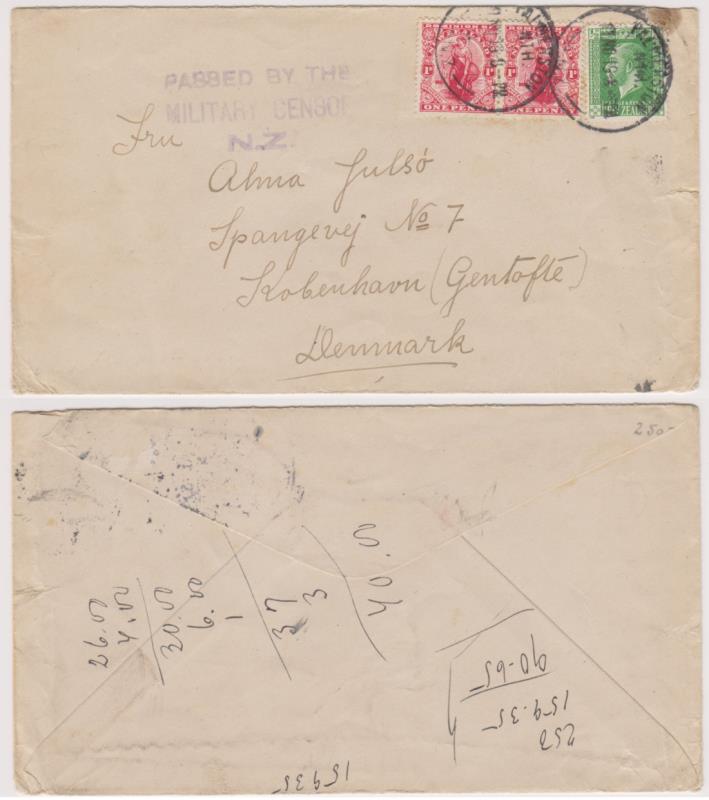 PASSED BY THE
MILITARY CENSOR
N.Z.
1d 1d
ONE PENNY ONE PENNY
Fru
Alma Julsó
Spangevej No 7
Kobenhavn (Gentofte)
Denmark
250-
26.00
4.00
30.00
6.00
1
37
3
40.00
253
159.35
90-65
15935